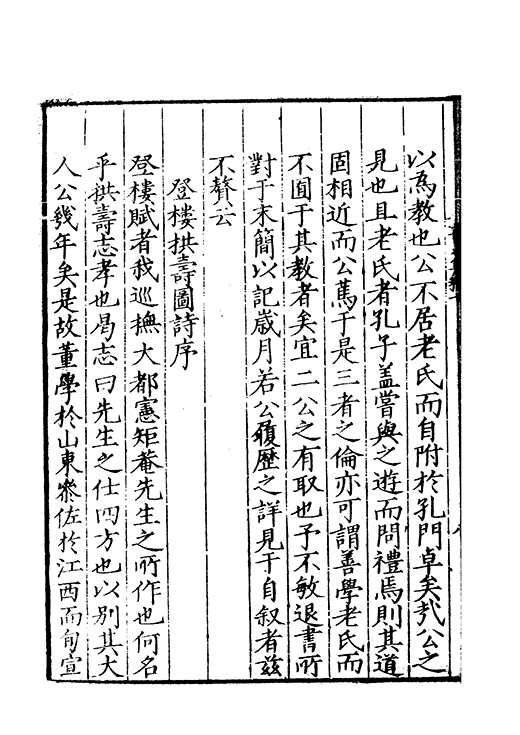 以爲教也公不居老氏而自附於孔門卓矣哉公之
見也且老氏者孔子盖嘗與之遊而問禮焉則其道
固相近而公篤于是三者之倫亦可謂善學老氏而
不囿于其教者矣宜二公之有取也予不敏退書所
對于末簡以記歲月若公履歷之詳見于自叙者茲
不贅云
登樓拱壽圖詩序
登樓賦者我巡撫大都憲矩菴先生之所作也何名
乎拱壽志孝也曷志曰先生之仕四方也以別其大
人公幾年矣是故董學於山東叅佐於江西而旬宣